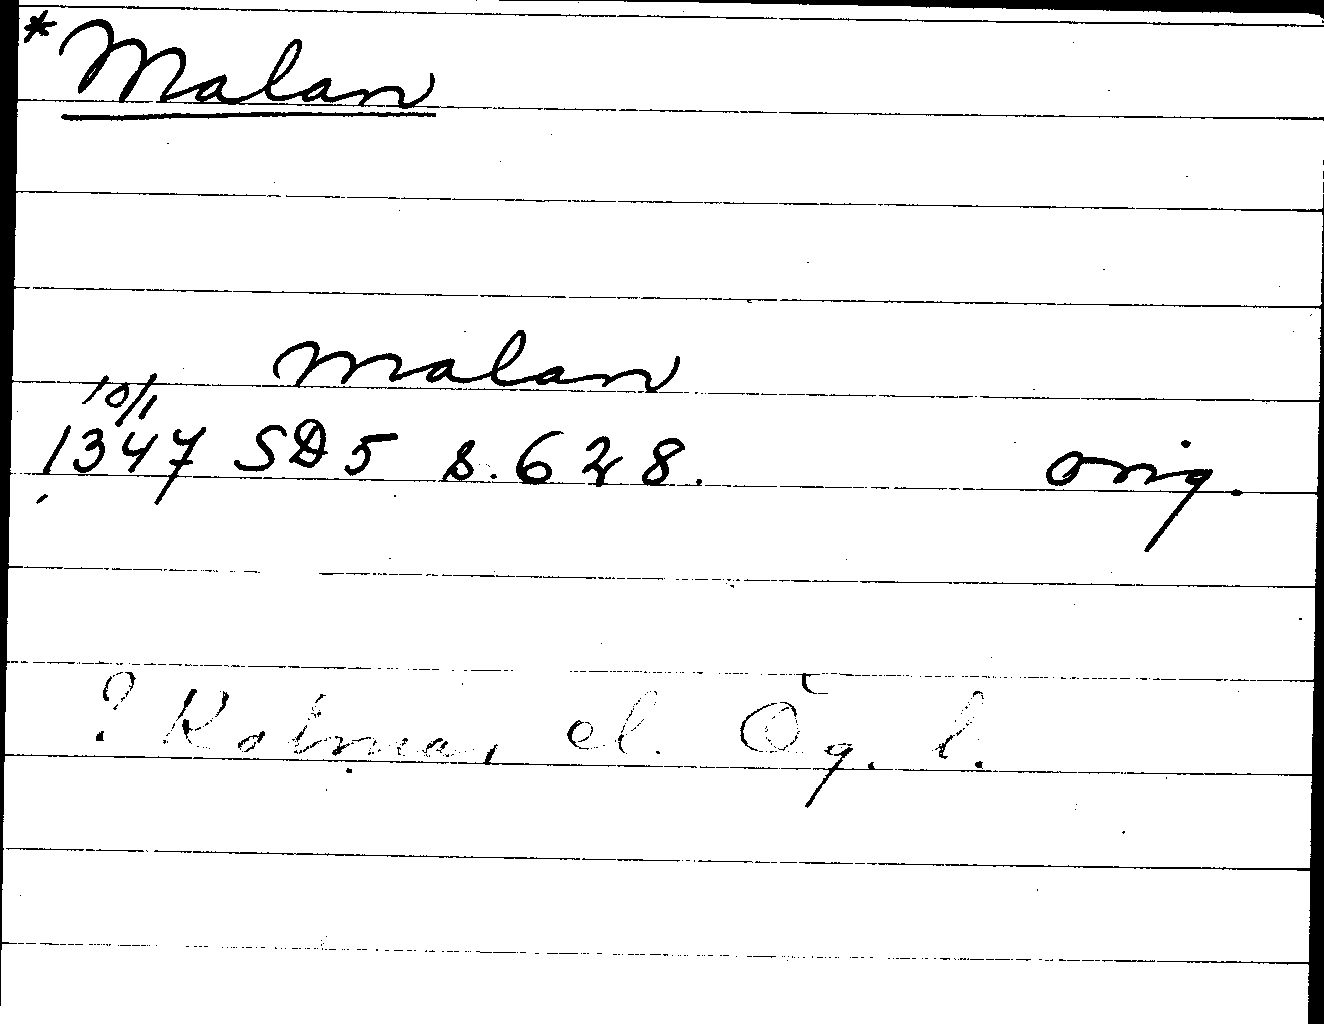 *Malan
malan
10/1
1347 SD5 s. 628. orig.
? Kolmar, el. Ög. l.